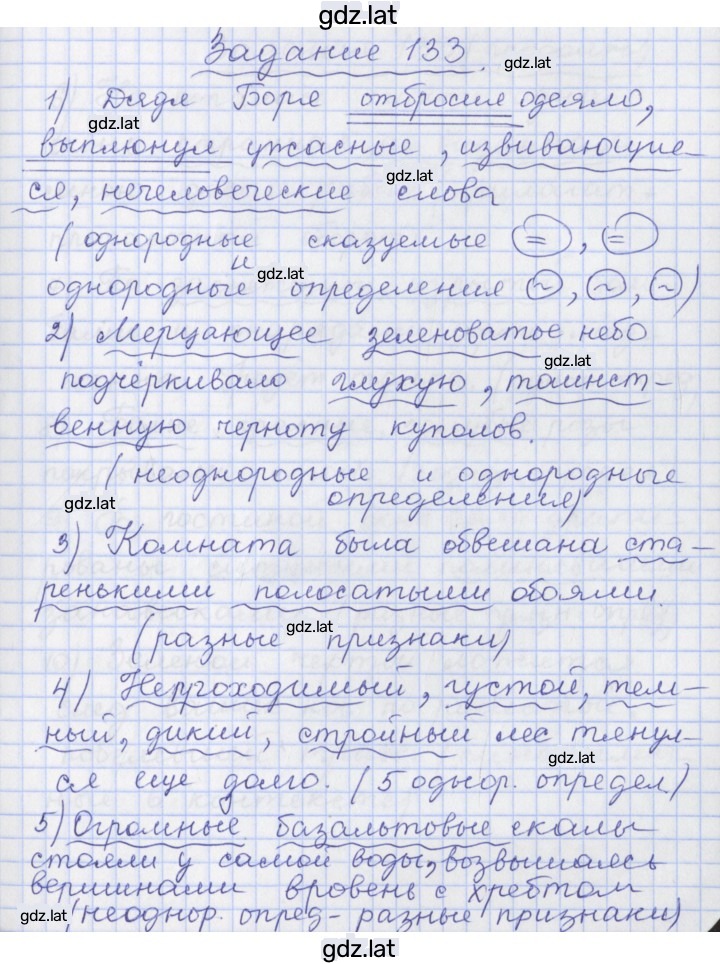 gdz.lat
Задание 133.
gdz.lat
1) Дядя Боря отбросил одеяло,
gdz.lat
выплюнул ужасные, извивающие-
gdz.lat
ся, нечеловеческие слова
(однородные сказуемые =, =
и gdz.lat
однородные определения ~, ~, ~)
2) Мерцающее зеленоватое небо
gdz.lat
подчёркивало глухую, таинст-
венную черноту куполов.
(неоднородные и однородные
gdz.lat
определения)
3) Комната была обвешана ста-
ренькими полосатыми обоями.
gdz.lat
(разные признаки)
4) Непроходимый, густой, тем-
ный, дикий, стройный лес тянул-
gdz.lat
ся еще долго. (5 однор. определ.)
5) Огромные базальтовые скалы
стояли у самой воды, возвышаясь
вершинами вровень с хребтом
gdz.lat
(неоднор. опред- разные признаки)
gdz.lat